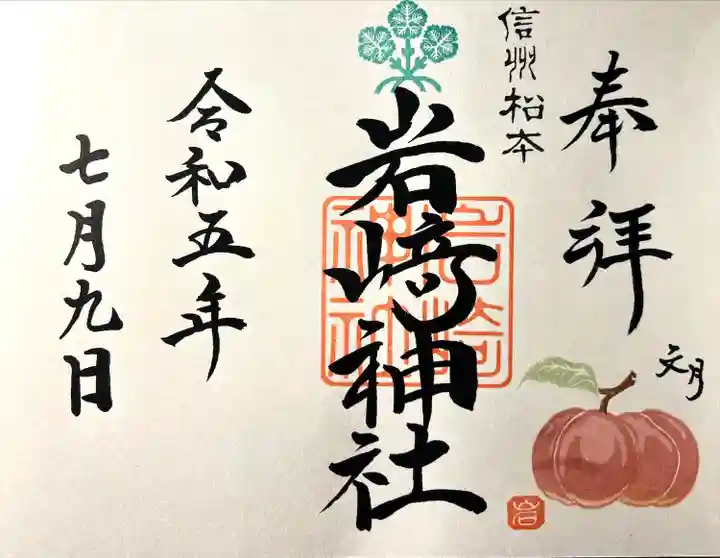 奉拝
文月
岩
信州松本
岩﨑神社
岩﨑神社
令和五年
七月九日